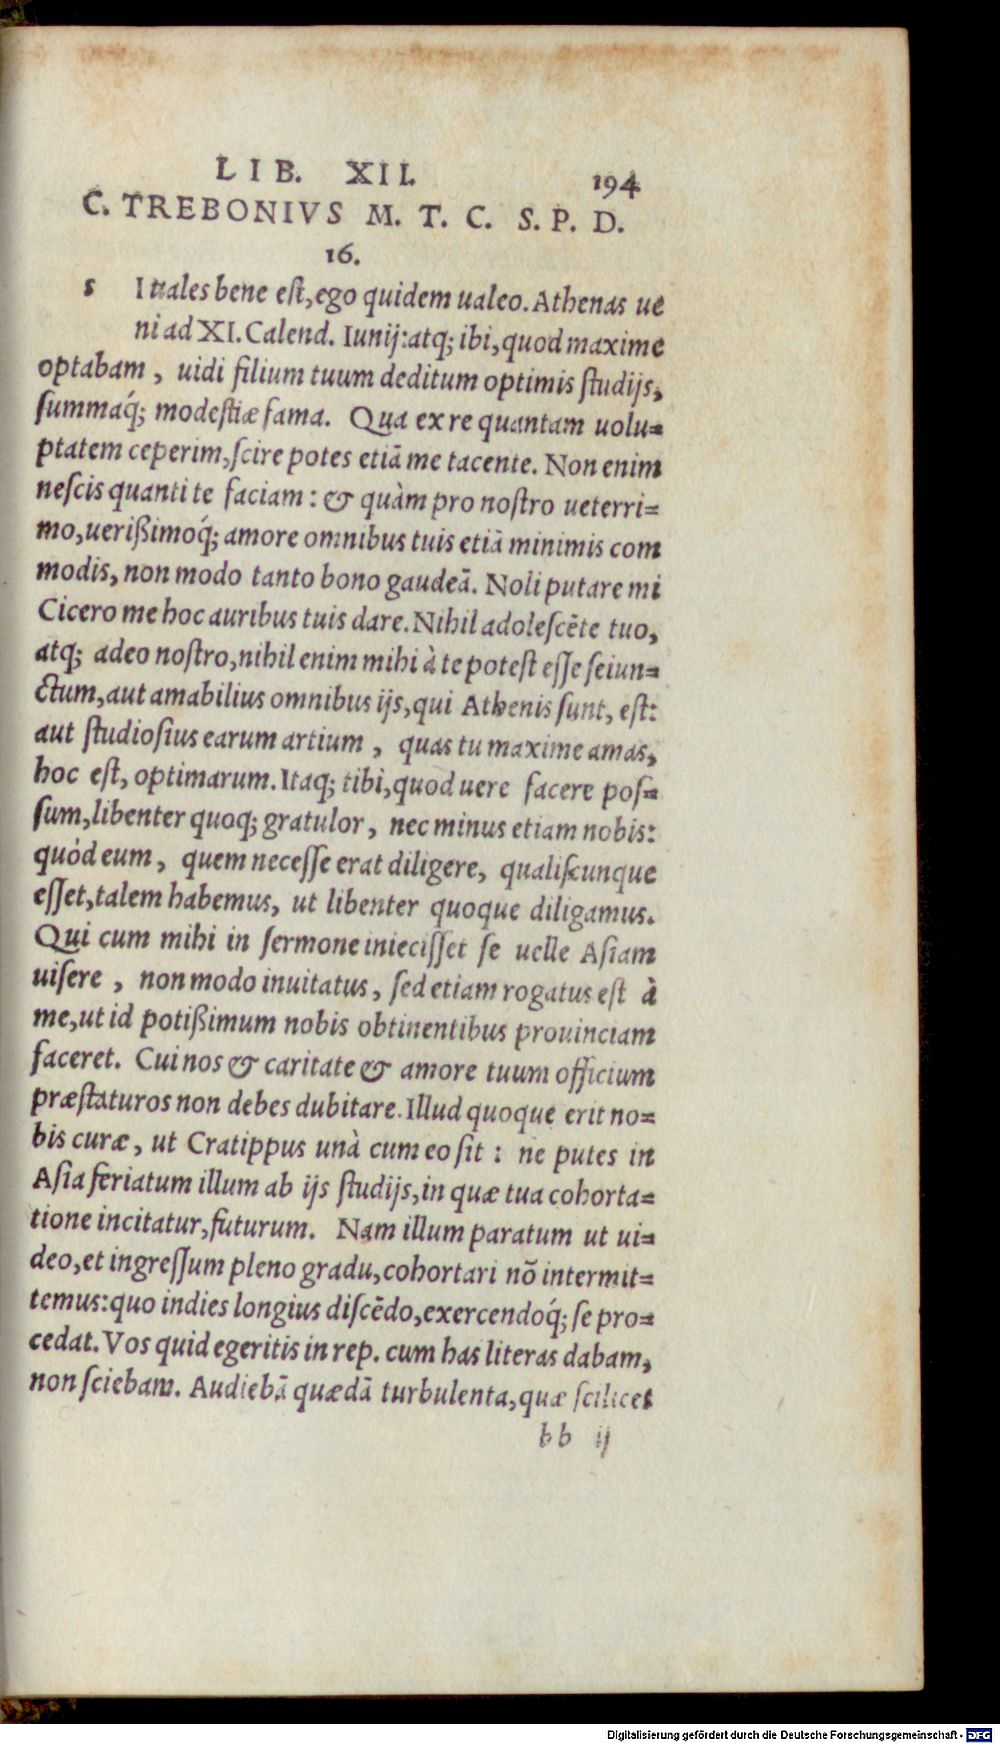 LIB. XII. 194
C. TREBONIVS M. T. C. S. P. D.
16.
s I uales bene eſt, ego quidem ualeo. Athenas ue
ni ad XI. Calend. Iunij: atq; ibi, quod maxime
optabam, uidi filium tuum deditum optimis ſtudijs,
ſummaq́; modeſtiæ fama. Qua ex re quantam uolu=
ptatem ceperim, ſcire potes etiā me tacente. Non enim
neſcis quanti te faciam: & quàm pro noſtro ueterri=
mo, uerißimoq́; amore omnibus tuis etiā minimis com
modis, non modo tanto bono gaudeā. Noli putare mi
Cicero me hoc auribus tuis dare. Nihil adoleſcēte tuo,
atq; adeo noſtro, nihil enim mihi à te poteſt eſſe ſeiun=
ctum, aut amabilius omnibus ijs, qui Athenis ſunt, eſt:
aut ſtudioſius earum artium, quas tu maxime amas,
hoc eſt, optimarum. Itaq; tibi, quod uere facere poſ=
ſum, libenter quoq; gratulor, nec minus etiam nobis:
quòd eum, quem neceſſe erat diligere, qualiſcunque
eſſet, talem habemus, ut libenter quoque diligamus.
Qui cum mihi in ſermone inieciſſet ſe uelle Aſiam
uiſere, non modo inuitatus, ſed etiam rogatus eſt à
me, ut id potißimum nobis obtinentibus prouinciam
faceret. Cui nos & caritate & amore tuum officium
præſtaturos non debes dubitare. Illud quoque erit no=
bis curæ, ut Cratippus unà cum eo ſit: ne putes in
Aſia feriatum illum ab ijs ſtudijs, in quæ tua cohorta=
tione incitatur, futurum. Nam illum paratum ut ui=
deo, et ingreſſum pleno gradu, cohortari nō intermit=
temus: quo indies longius diſcēdo, exercendoq́; ſe pro=
cedat. Vos quid egeritis in rep. cum has literas dabam,
non ſciebam. Audiebā quædā turbulenta, quæ ſcilicet
bb ij
Digitalisierung gefördert durch die Deutsche Forschungsgemeinschaft - DFG